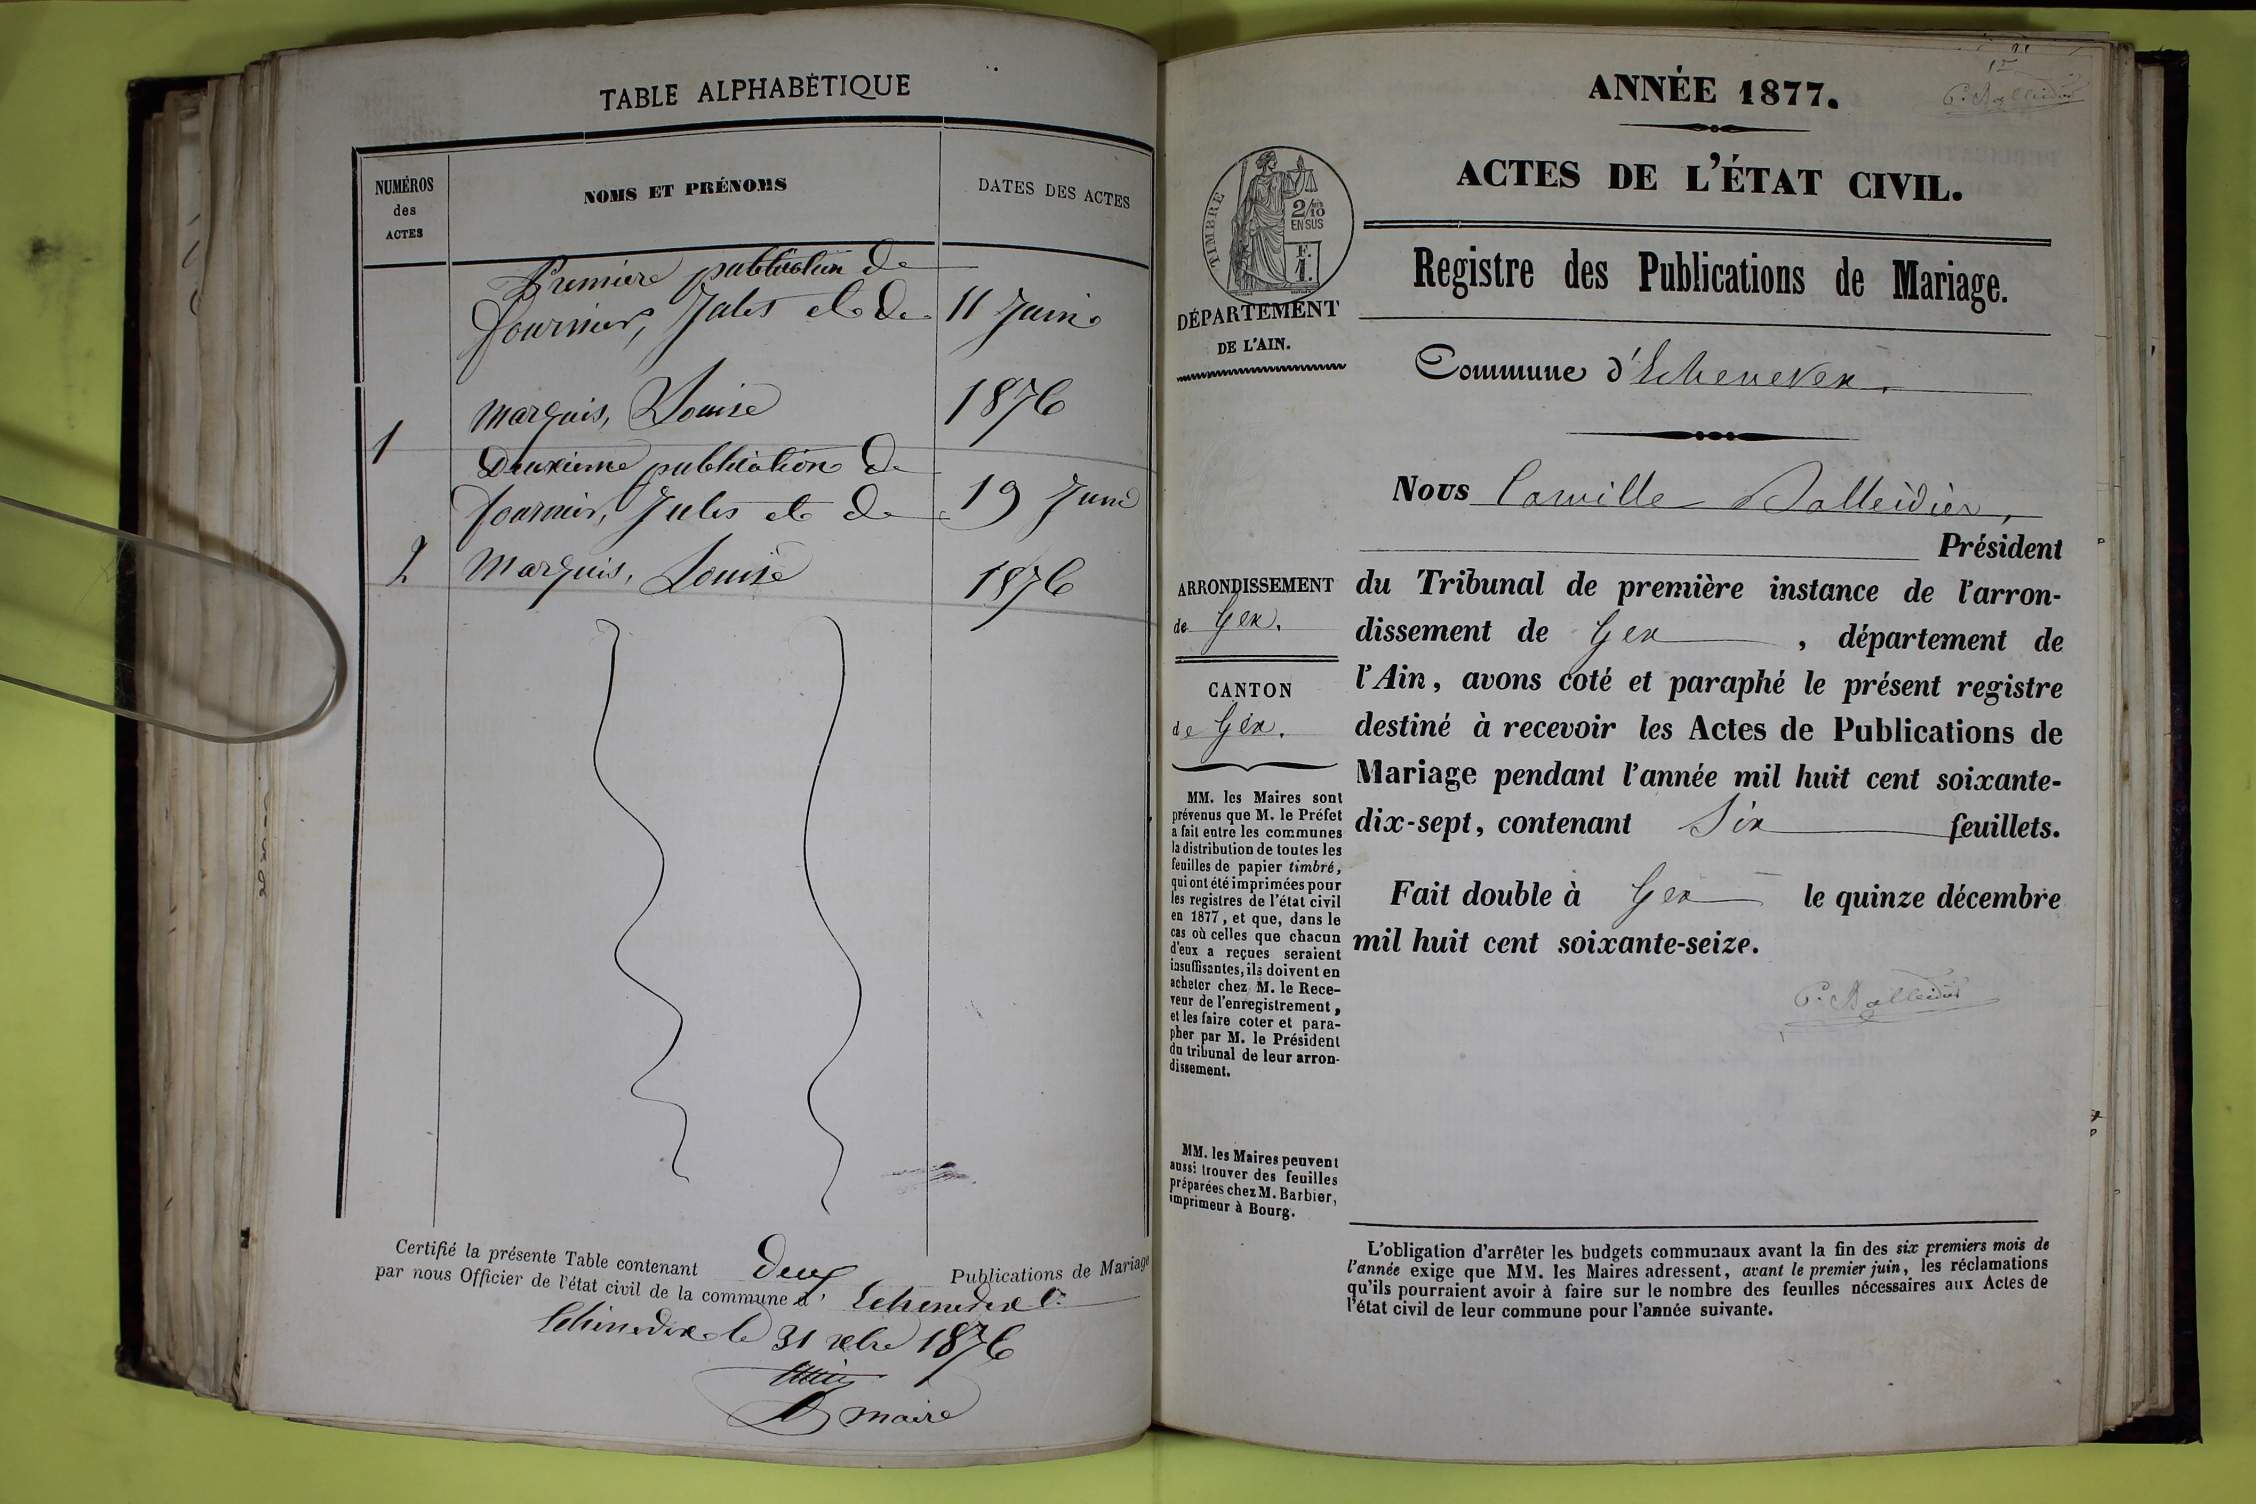 TABLE ALPHABÉTIQUE
NUMÉROS
des
ACTES
NOMS ET PRÉNOMS
DATES DES ACTES
Première publication de
fournier, Jules et de
11 Juin
marquis, Louise
1876
1
Deuxième publication de
fournier, Jules et de
19 Juin
2
marquis, Louise
1876
Certifié la présente Table contenant deux Publications de Mariage
par nous Officier de l'état civil de la commune d'Echenevex
Echenevex le 31 xbre 1876
maire
ANNÉE 1877.
1er
C. Balleidier
ACTES DE L'ÉTAT CIVIL.
TIMBRE
2/10
EN SUS
F.
1.
Registre des Publications de Mariage.
DÉPARTEMENT
DE L'AIN.
Commune d'Echenevex.
Nous Camille Balleidier,
Président
du Tribunal de première instance de l'arron-
dissement de Gex, département de
l'Ain, avons coté et paraphé le présent registre
destiné à recevoir les Actes de Publications de
Mariage pendant l'année mil huit cent soixante-
dix-sept, contenant Six feuillets.
Fait double à Gex le quinze décembre
mil huit cent soixante-seize.
C. Balleidier
ARRONDISSEMENT
de Gex.
CANTON
de Gex.
MM. les Maires sont
prévenus que M. le Préfet
a fait entre les communes
la distribution de toutes les
feuilles de papier timbré,
qui ont été imprimées pour
les registres de l'état civil
en 1877, et que, dans le
cas où celles que chacun
d'eux a reçues seraient
insuffisantes, ils doivent en
acheter chez M. le Rece-
veur de l'enregistrement,
et les faire coter et para-
pher par M. le Président
du tribunal de leur arron-
dissement.
MM. les Maires peuvent
aussi trouver des feuilles
préparées chez M. Barbier,
imprimeur à Bourg.
L'obligation d'arrêter les budgets communaux avant la fin des six premiers mois de
l'année exige que MM. les Maires adressent, avant le premier juin, les réclamations
qu'ils pourraient avoir à faire sur le nombre des feuilles nécessaires aux Actes de
l'état civil de leur commune pour l'année suivante.